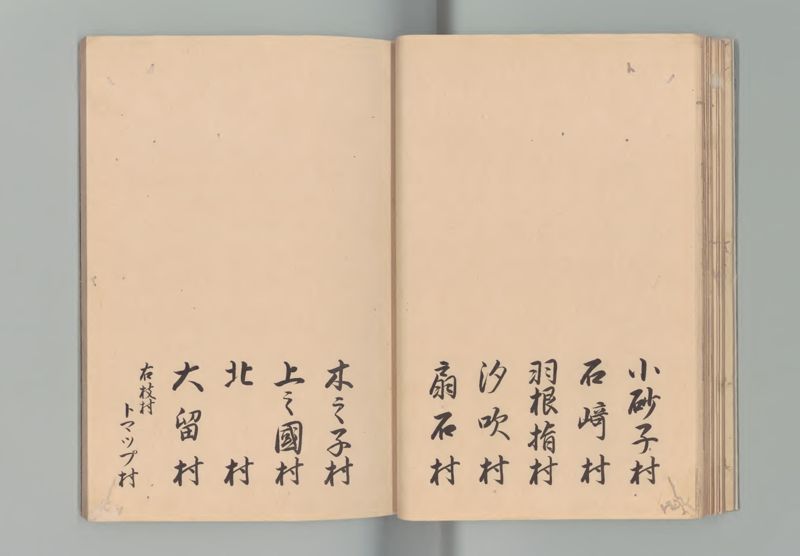 小砂子村
石崎村
羽根指村
汐吹村
扇石村
木之子村
上之國村
北村
大留村
右枝村
トマップ村